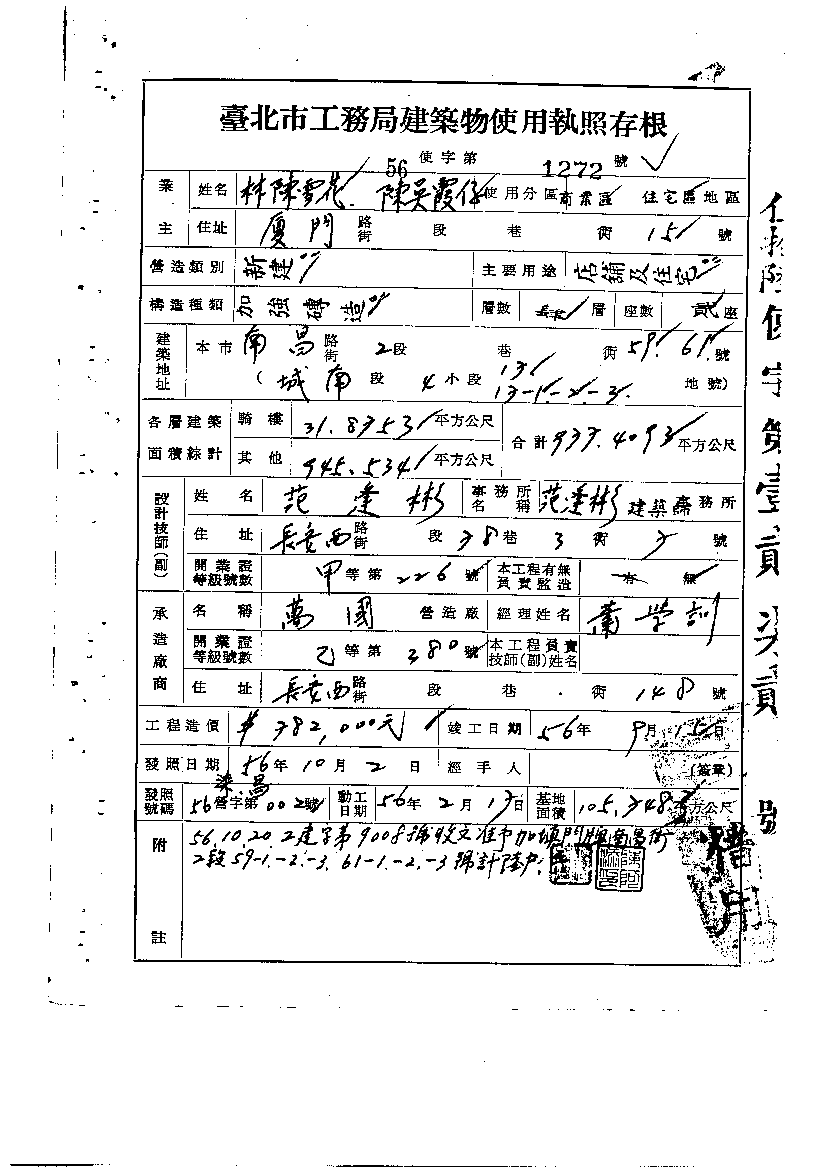 臺北市工務局建築物使用執照存根
56使字第1272號
業主 姓名 林陳雪花 陳吳霞仔 使用分區 商業區 住宅區地區
住址 廈門路街 段 巷 街 15 號
營造類別 新建 主要用途 店舖及住宅
構造種類 加強磚造 層數 層 座數 貳座
建築地址 本市南昌路街 2段 巷 街 59. 61. 號
(城南段 4小段 13 13-1-2-3. 地號)
各層建築面積綜計 騎樓 31.8353平方公尺 合計 平方公尺
其他 945.534平方公尺
設計技師(副) 姓名 范逢彬 事務所名稱 范逢彬建築師事務所
住址 長安西路街 段 38巷 3街 號
開業證等級號數 甲等第226號 本工程有無負責監造 有 無
承造廠商 名稱 萬國 營造廠 經理姓名 蕭學訓
開業證等級號數 乙等第380號 本工程負責技師(副)姓名
住址 長安西路街 段 巷 街 148號
工程造價 $382,000元 竣工日期 56年9月15日
發照日期 56年10月2日 經手人 (簽章)
發照號碼 56營字第002號 動工日期 56年2月13日 基地面積 105. 平方公尺
附註 56.10.20.2建字第9008號收文准予加填門牌南昌街
2段59-1.-2.-3. 61-1.-2.-3號計陸戶.
使字第壹貳柒貳號